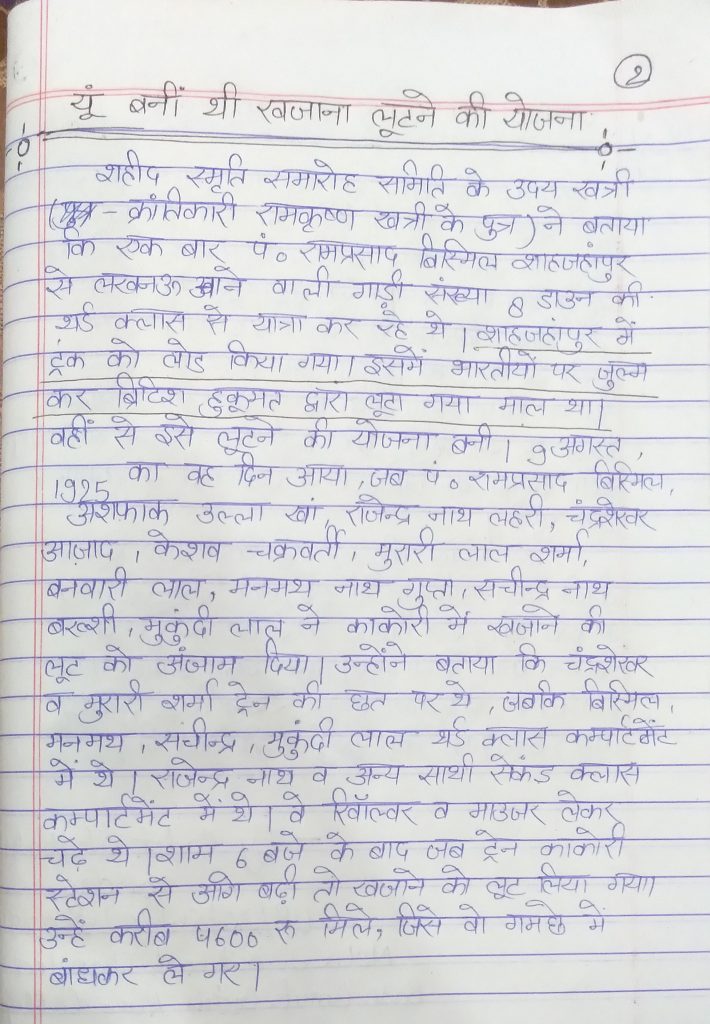 २
यूं बनीं थी खजाना लूटने की योजना
शहीद स्मृति समारोह समिति के उदय खत्री
( - क्रांतिकारी रामकृष्ण खत्री के पुत्र) ने बताया
कि एक बार पं० रामप्रसाद बिस्मिल शाहजहांपुर
से लखनऊ आने वाली गाड़ी संख्या 8 डाउन की
थर्ड क्लास से यात्रा कर रहे थे। शाहजहांपुर में
ट्रंक को लोड किया गया। इसमें भारतीयों पर जुल्म
कर ब्रिटिश हुकूमत द्वारा लूटा गया माल था।
वहीं से इसे लूटने की योजना बनी। 9 अगस्त,
1925 का वह दिन आया, जब पं० रामप्रसाद बिस्मिल,
अशफाक उल्ला खां, राजेन्द्र नाथ लहरी, चंद्रशेखर
आज़ाद, केशव चक्रवर्ती, मुरारी लाल शर्मा,
बनवारी लाल, मनमथ नाथ गुप्ता, सचीन्द्र नाथ
बख्शी, मुकुंदी लाल ने काकोरी में खजाने की
लूट को अंजाम दिया। उन्होंने बताया कि चंद्रशेखर
व मुरारी शर्मा ट्रेन की छत पर थे, जबकि बिस्मिल,
मनमथ, सचीन्द्र, मुकुंदी लाल थर्ड क्लास कम्पार्टमेंट
में थे। राजेन्द्र नाथ व अन्य साथी सेकंड क्लास
कम्पार्टमेंट में थे। वे रिवॉल्वर व माउजर लेकर
चढ़े थे। शाम 6 बजे के बाद जब ट्रेन काकोरी
स्टेशन से आगे बढ़ी तो खजाने को लूट लिया गया।
उन्हें करीब 4600 रू मिले, जिसे वो गमछे में
बांधकर ले गए।